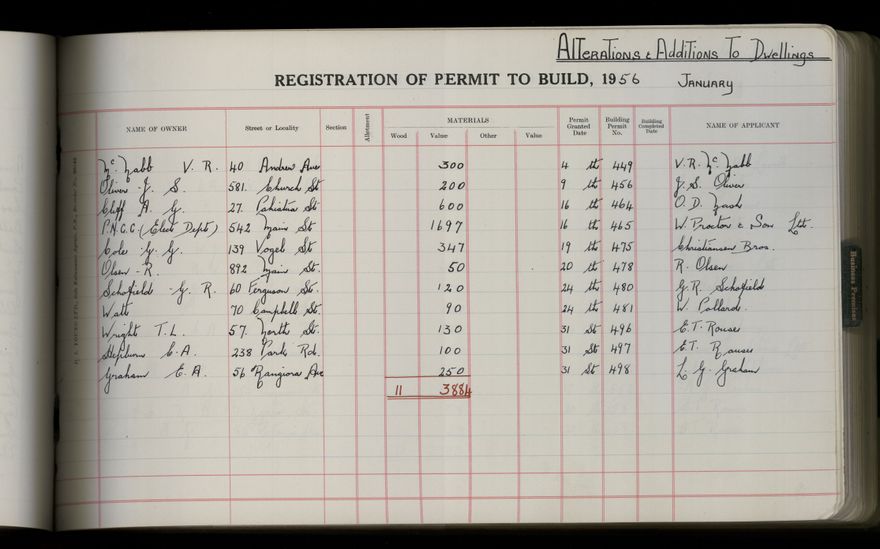 Alterations & Additions To Dwellings
REGISTRATION OF PERMIT TO BUILD, 1956 January
MATERIALS
NAME OF OWNER Street or Locality Section Allotment Wood Value Other Value Permit Granted Date Building Permit No. Building Completed Date NAME OF APPLICANT
McNabb V. R. 40 Andrew Ave 300 4 th 449 V. R. McNabb
Oliver J. S. 581. Church St 200 9 th 456 J. S. Oliver
Cliff A. G. 27. St 600 16 th 464 O. D. Nash
P.N.C.C. (Elect Dept) 542 Main St 1697 16 th 465 W. Proctor & Son Ltd.
Cole G. G. 139 Vogel St 347 19 th 475 Christiansen Bros.
Olsen R. 892 Main St. 50 20 th 478 R. Olsen
Schofield G. R. 60 Ferguson St. 120 24 th 480 G. R. Schofield
Watt 70 Campbell St. 90 24 th 481 W. Pollard.
Wright T. L. 57. North St. 130 31 St 496 E. T. Rouse
Hepburn C. A. 238 Park Rd. 100 31 St 497 E. T. Rouse
Graham E. A. 56 Rangiora Ave 250 31 St 498 L. G. Graham
11 3884
Business Premises